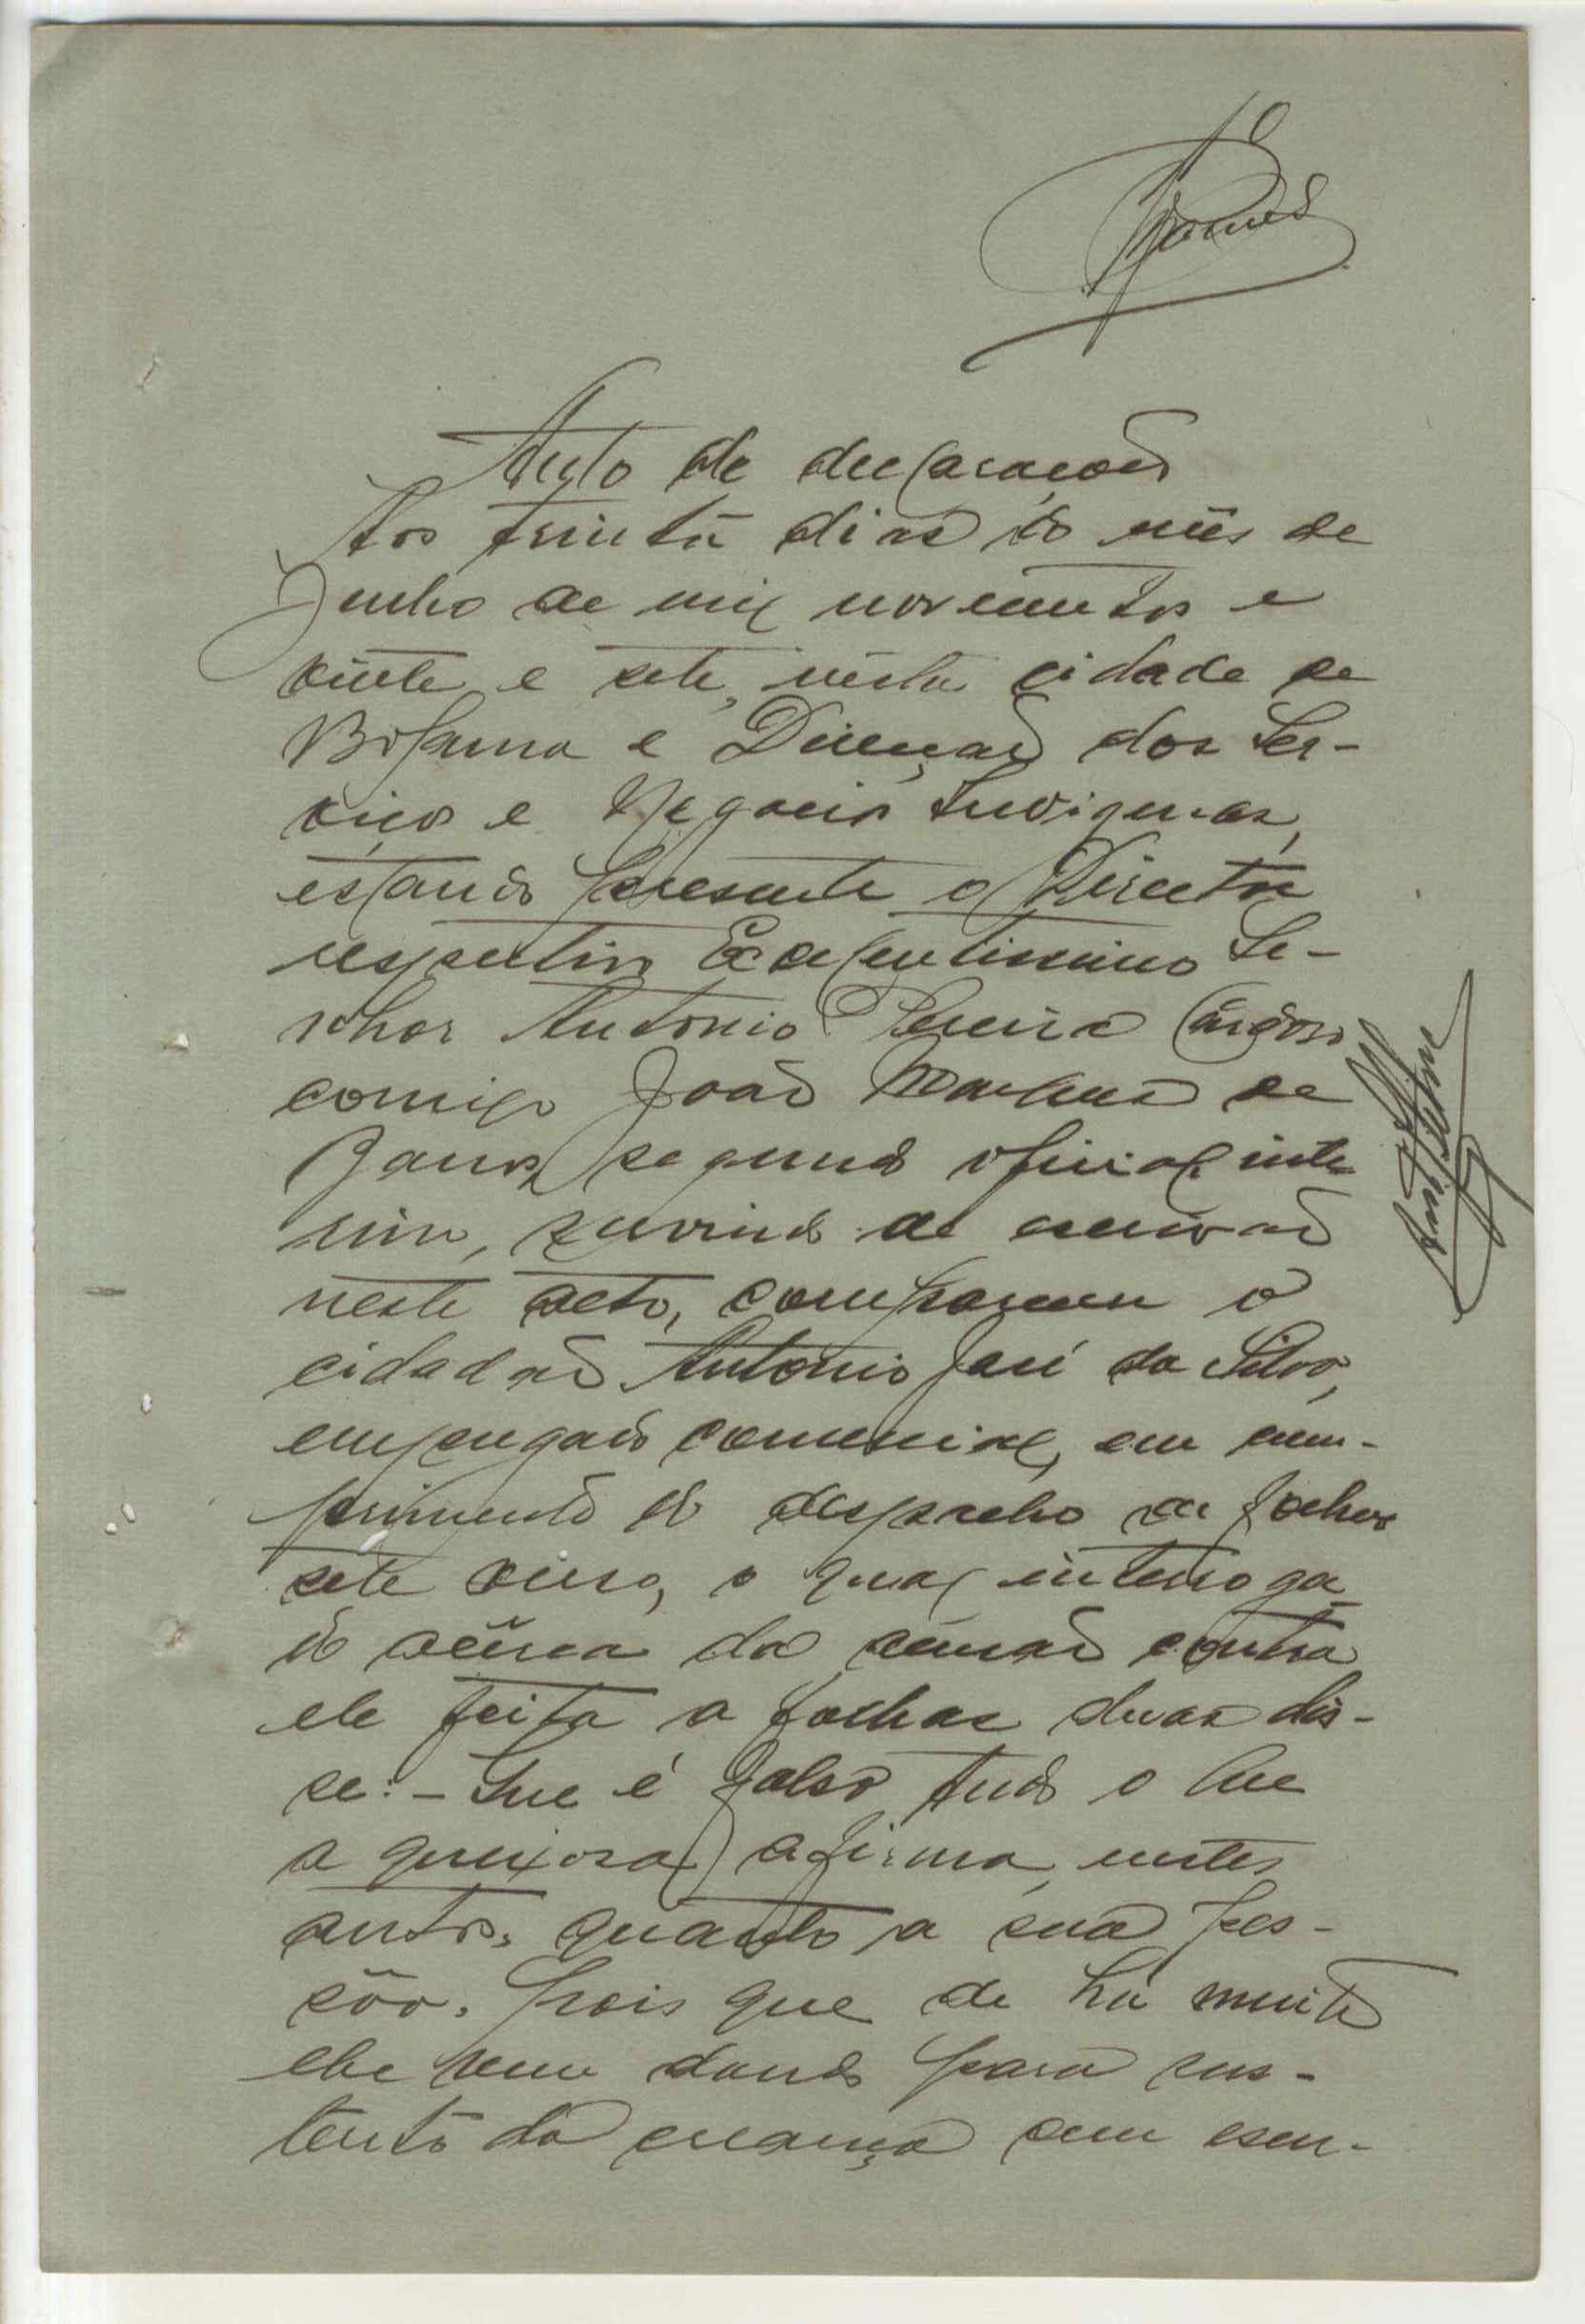 Auto de declarações
Aos trinta dias do mês de
Junho de mil novecentos e
vinte e sete, nesta cidade de
Bolama e Direcção dos Ser-
viços e Negocios Indigenas,
estando presente o Director
respectivo Excelentissimo Se-
nhor Antonio Pereira Cardoso
comigo João Martins de
Barros segundo oficial inte
rino, servindo de escrivão
neste acto, compareceu o
cidadão Antonio José da Silva,
empregado comercial, em cum-
primento do despacho de folhas
sete verso, o qual interroga
do acêrca da acusação contra
ele feita a folhas duas dis-
se: - Que é falso tudo o que
a queixosa afirma nestes
autos, quanto a sua pes-
sôa, pois que de há muito
ele vem dando para sus-
tento da creança cem escu-